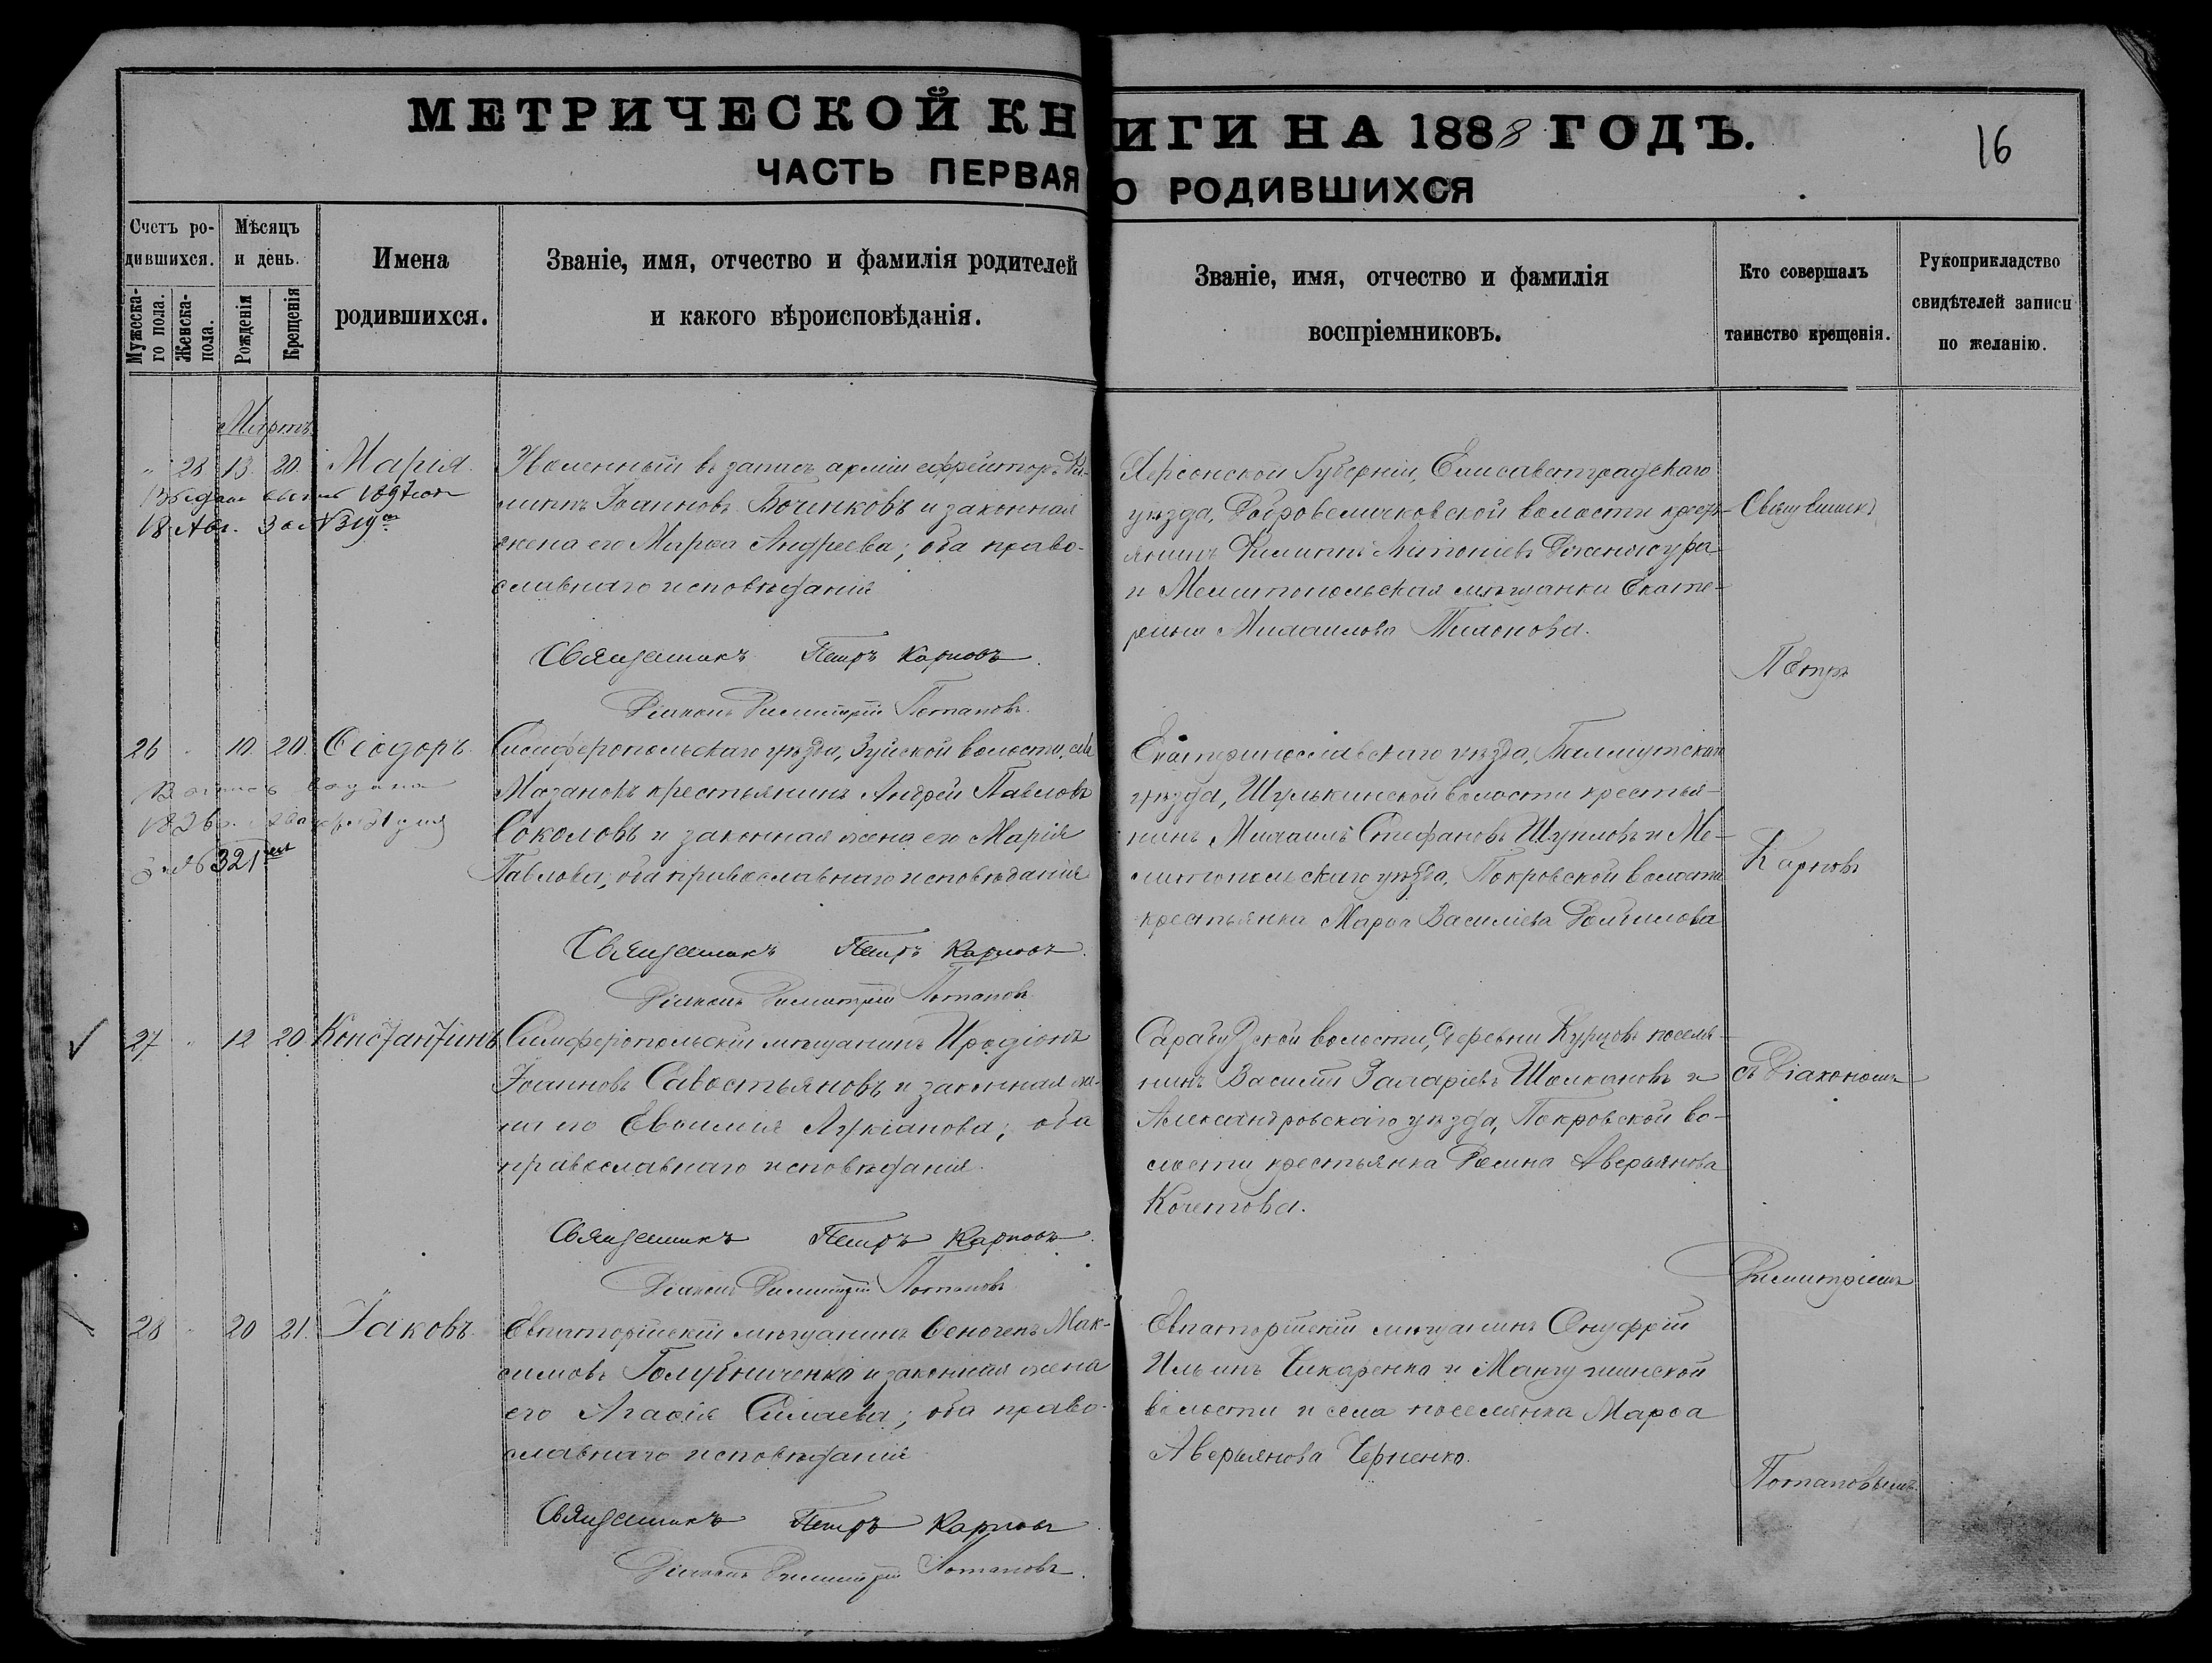 МЕТРИЧЕСКОЙ КНИГИ НА 1888 ГОДЪ.
16
ЧАСТЬ ПЕРВАЯ О РОДИВШИХСЯ
Счетъ родившихся.
Мужеска-го пола.
Женска-пола.
Мѣсяцъ и день.
Рожденія
Крещенія
Имена
родившихся.
Званіе, имя, отчество и фамилія родителей
и какого вѣроисповѣданія.
Званіе, имя, отчество и фамилія
воспріемниковъ.
Кто совершалъ
таинство крещенія.
Рукоприкладство
свидѣтелей записи
по желанію.
Мартъ
" 28. 13. 20. Марія.
18 Авг. За №319
въ запасъ арміи ефрейторъ Фи-
липпъ Іоанновъ Боченковъ и законная
жена его Марѳа Андреева; оба право-
славнаго исповѣданія
Священникъ Петръ Карповъ.
Діаконъ Димитрій Потаповъ.
Херсонской Губерніи, Елисаветградскаго
уѣзда, Добровеличковской волости кресть-
янинъ Филиппъ Антоніевъ
и Мелитопольская мѣщанка Екате-
рина Михаилова
26 " 10 20. Ѳеодоръ.
321
Симферопольскаго уѣзда, Зуйской волости, села
Мазанокъ крестьянинъ Андрей Павловъ
Соколовъ и законная жена его Марія
Павлова; оба православнаго исповѣданія
Священникъ Петръ Карповъ.
Діаконъ Димитрій Потаповъ
Екатеринославскаго уѣзда,
уѣзда, волости крестья-
нинъ Михаилъ Стефановъ и Ме-
литопольскаго уѣзда, Покровской волости
крестьянка Марѳа Василіева
27 " 12 20 Константинъ
Симферопольскій мѣщанинъ Иродіонъ
Іоанновъ Савостьяновъ и законная же-
на его Евѳимія Лукіанова; оба
православнаго исповѣданія.
Священникъ Петръ Карповъ.
Діаконъ Димитрій Потаповъ
Сарабузской волости, деревни Курцовъ поселя-
нинъ Василій Захаріевъ и
Александровскаго уѣзда, Покровской во-
лости крестьянка Аверьянова
Кочетова.
28 " 20 21. Іаковъ.
Евпаторійскій мѣщанинъ Мак-
симовъ Голубниченко и законная жена
его Агаѳія Силаева; оба право-
славнаго исповѣданія
Священникъ Петръ Карповъ
Діаконъ Димитрій Потаповъ.
Евпаторійскій мѣщанинъ Онуфрій
Ильинъ Чикаренко и Мангушской
волости и села поселянка Марѳа
Аверьянова Черненко.
Священникъ
Петръ
Карповъ
съ Діакономъ
Димитріемъ
Потаповымъ.